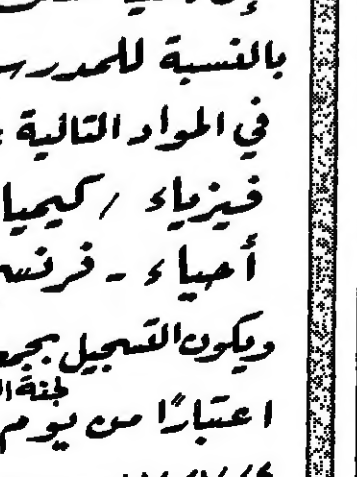 بالنسبة للمدرس
في المواد التالية :
فيزياء / كيميا
أحياء - فرنس
ويكون التسجيل بجم
لجنة ال
اعتبارًا من يوم